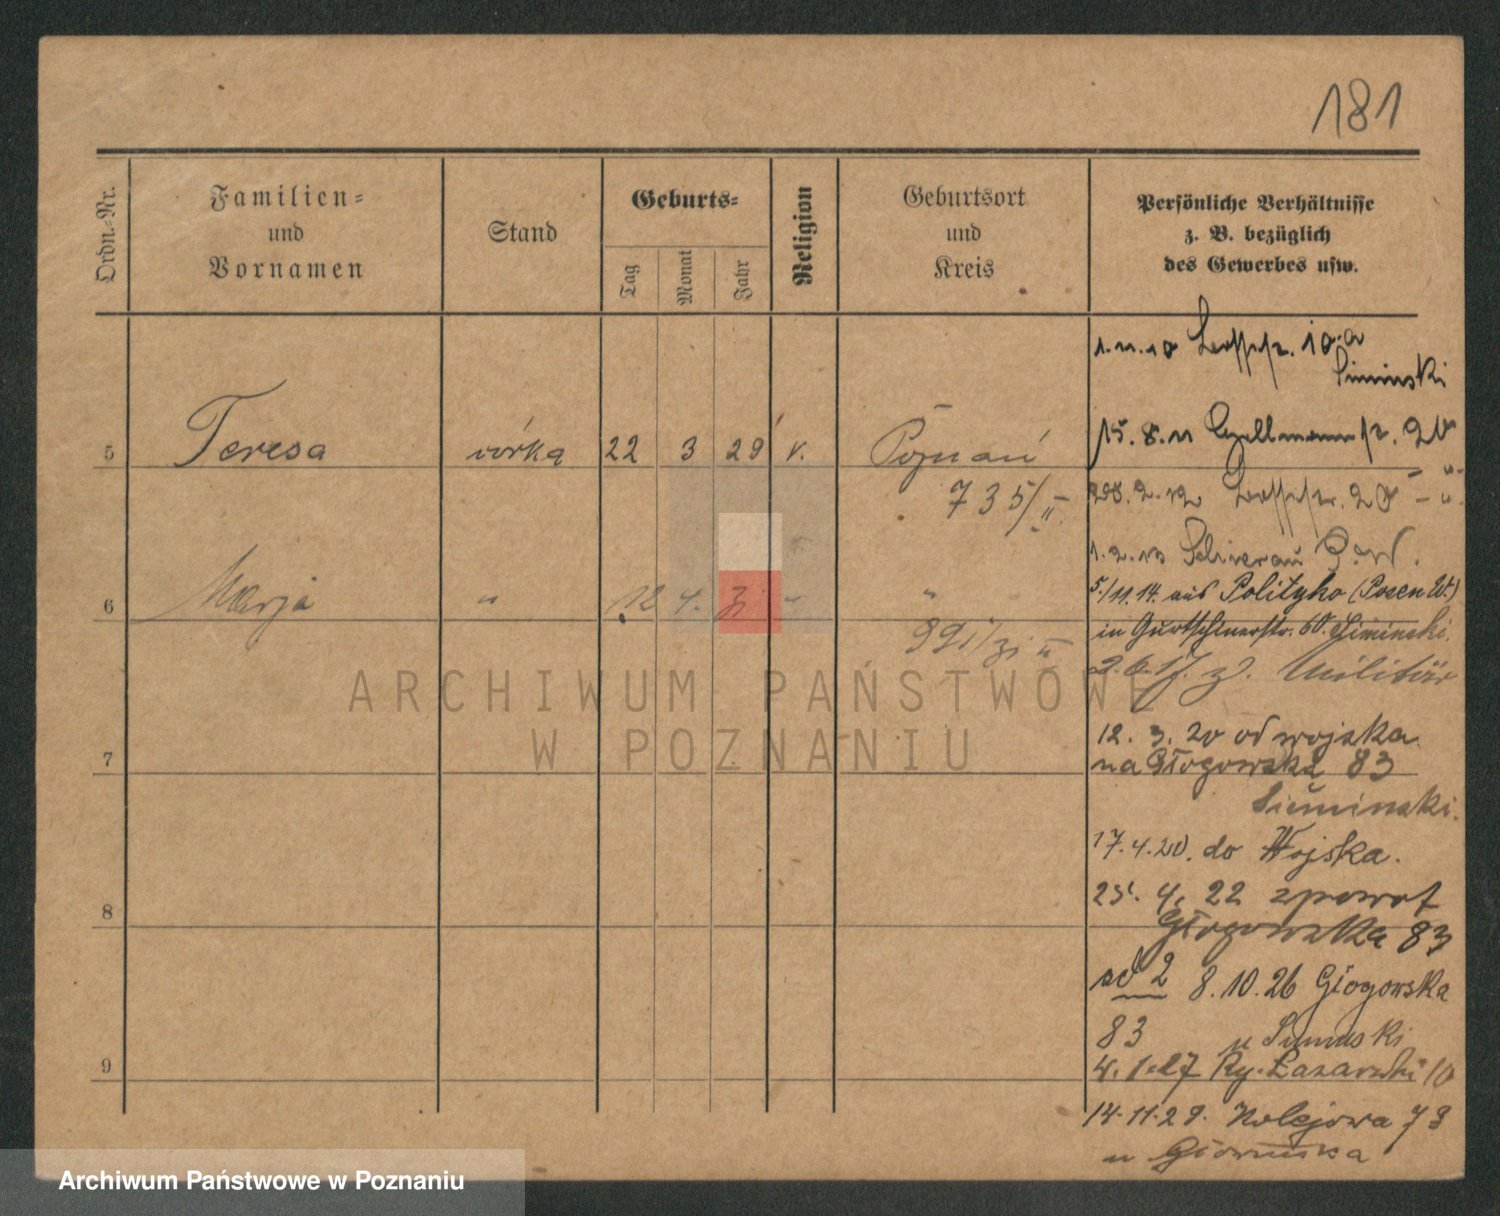 181
Ordn.-Nr.
Familien-
und
Vornamen
Stand
Geburts-
Tag
Monat
Jahr
Religion
Geburtsort
und
Kreis
Persönliche Verhältnisse
z. B. bezüglich
des Gewerbes usw.
5 Teresa córka 22 3 29 Poznań
735/II
6 Marja " 12 4. 31 " "
991/31 II
7
8
9
10a
Siminski
15. 8. 11 20
28. 2. 12 20 - "
1. 2. 13
5./11.14. aus Polityko (Posen W.)
in Gurtschinerstr. 60. Siminski.
2.6.17. z. Militär
12. 3. 20 od wojska
na Głogowską 83
Sieminski.
17.4.20. do Wojska.
25. 4. 22 zpowrot
Głogowska 83
ad 2 8.10.26 Głogowska
83 u
4.1.27 Ry. Łazarski 10
14.11.29. Kolejowa 73
u
ARCHIWUM PAŃSTWOWE
W POZNANIU
Archiwum Państwowe w Poznaniu